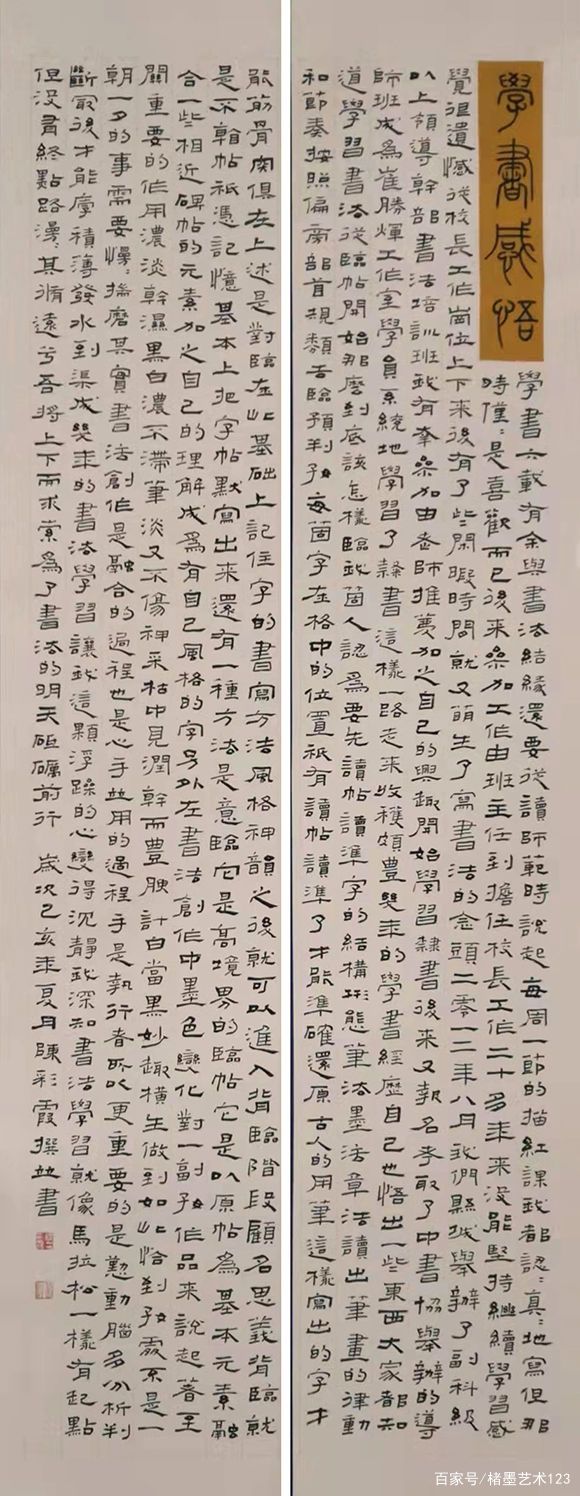 學書感悟
學書六載有余與書法結緣還要從讀師範時說起每周一節的描紅課我都認:真:地寫但那
時僅:是喜歡而已後來參加工作由班主任到擔任校長工作二十多年來沒能堅持繼續學習感
覺很遺憾從校長工作崗位上下來後有了些閑暇時間就又萌生了寫書法的念頭二零一二年八月我們縣城舉辦了副科級
以上領導幹部書法培訓班我有幸參加由老師推薦加之自己的興趣開始學習隸書後來又報名考取了中書協舉辦的導
師班成為崔勝輝工作室學員系統地學習了隸書這樣一路走來收穫頗豐幾年的學書經歷自己也悟出一些東西大家都知
道學習書法從臨帖開始那麼到底該怎樣臨我箇人認為要先讀帖讀準字的結構形態筆法墨法章法讀出筆畫的律動
和節奏按照偏旁部首規類去臨預判好每箇字在格中的位置祇有讀帖讀準了才能準確還原古人的用筆這樣寫出的字才
能筋骨肉俱在上述是對臨在此基础上記住字的書寫方法風格神韻之後就可以進入背臨階段顧名思義背臨就
是不翰帖祇憑記憶基本上把字帖默寫出来還有一種方法是意臨它是高境界的臨帖它是以原帖為基本元素融
合一些相近碑帖的元素加之自己的理解成為有自己風格的字另外在書法創作中墨色變化對一副好作品来說起著至
關重要的作用濃淡幹濕黑白濃不滯筆淡又不傷神采枯中見潤幹而豐腴計白當黑妙趣橫生做到如此恰到好處不是一
朝一夕的事需要慢:揣磨其實書法創作是融合的過程也是心手並用的過程手是執行者所以更重要的是懃動腦多分析判
斷最後才能厚積薄發水到渠成幾年的書法學習讓我這顆浮躁的心變得沉靜我深知書法學習就像馬拉松一樣有起點
但没有終點路漫:其脩遠兮吾將上下而求索為了書法的明天砥礪前行 歲次己亥年夏月陳彩霞撰並書
百家号/楮墨艺术123